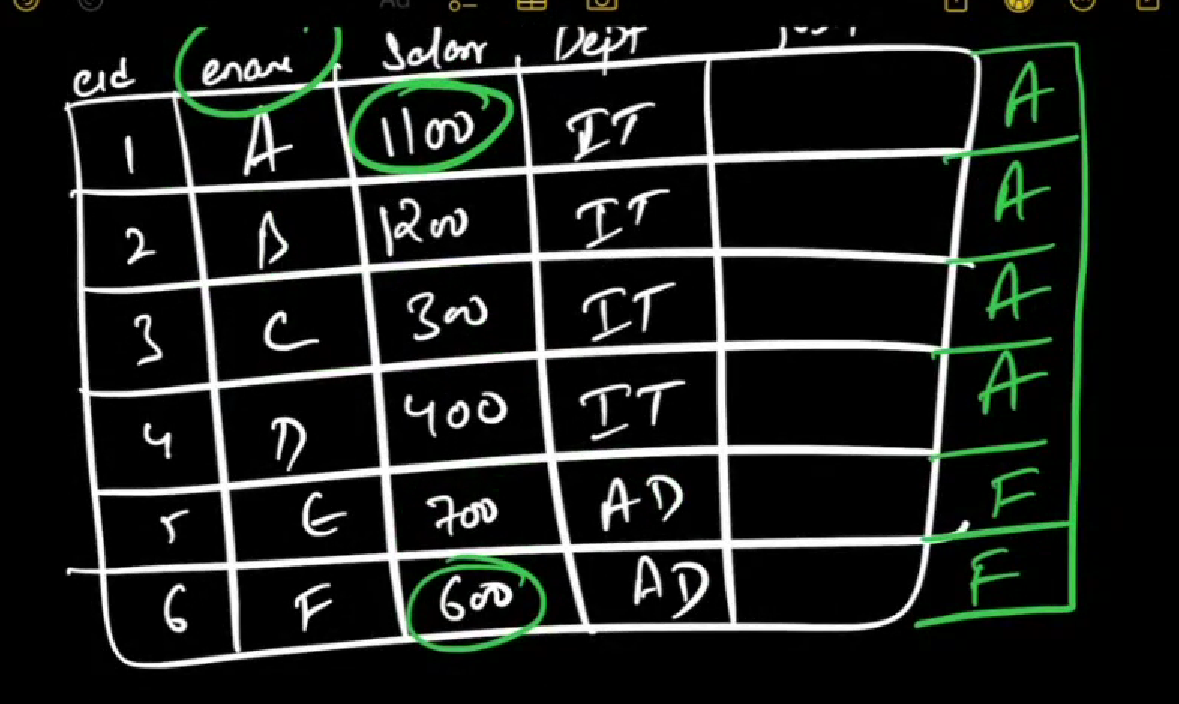 eid ename Salary Dept
1 A 1100 IT A
2 B 1200 IT A
3 C 300 IT A
4 D 400 IT A
5 E 700 AD F
6 F 600 AD F